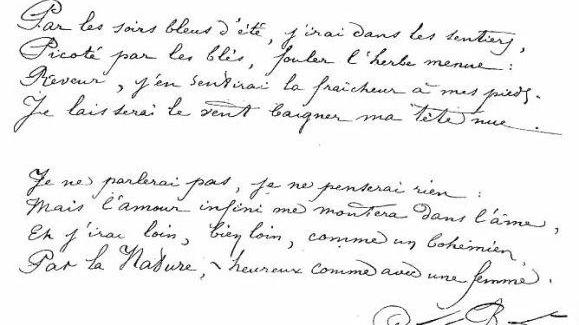 Par les soirs bleus d'été, j'irai dans les sentiers,
Picoté par les blés, fouler l'herbe menue :
Rêveur, j'en sentirai la fraîcheur à mes pieds.
Je laisserai le vent baigner ma tête nue.
Je ne parlerai pas, je ne penserai rien :
Mais l'amour infini me montera dans l'âme,
Et j'irai loin, bien loin, comme un bohémien,
Par la Nature, - heureux comme avec une femme.